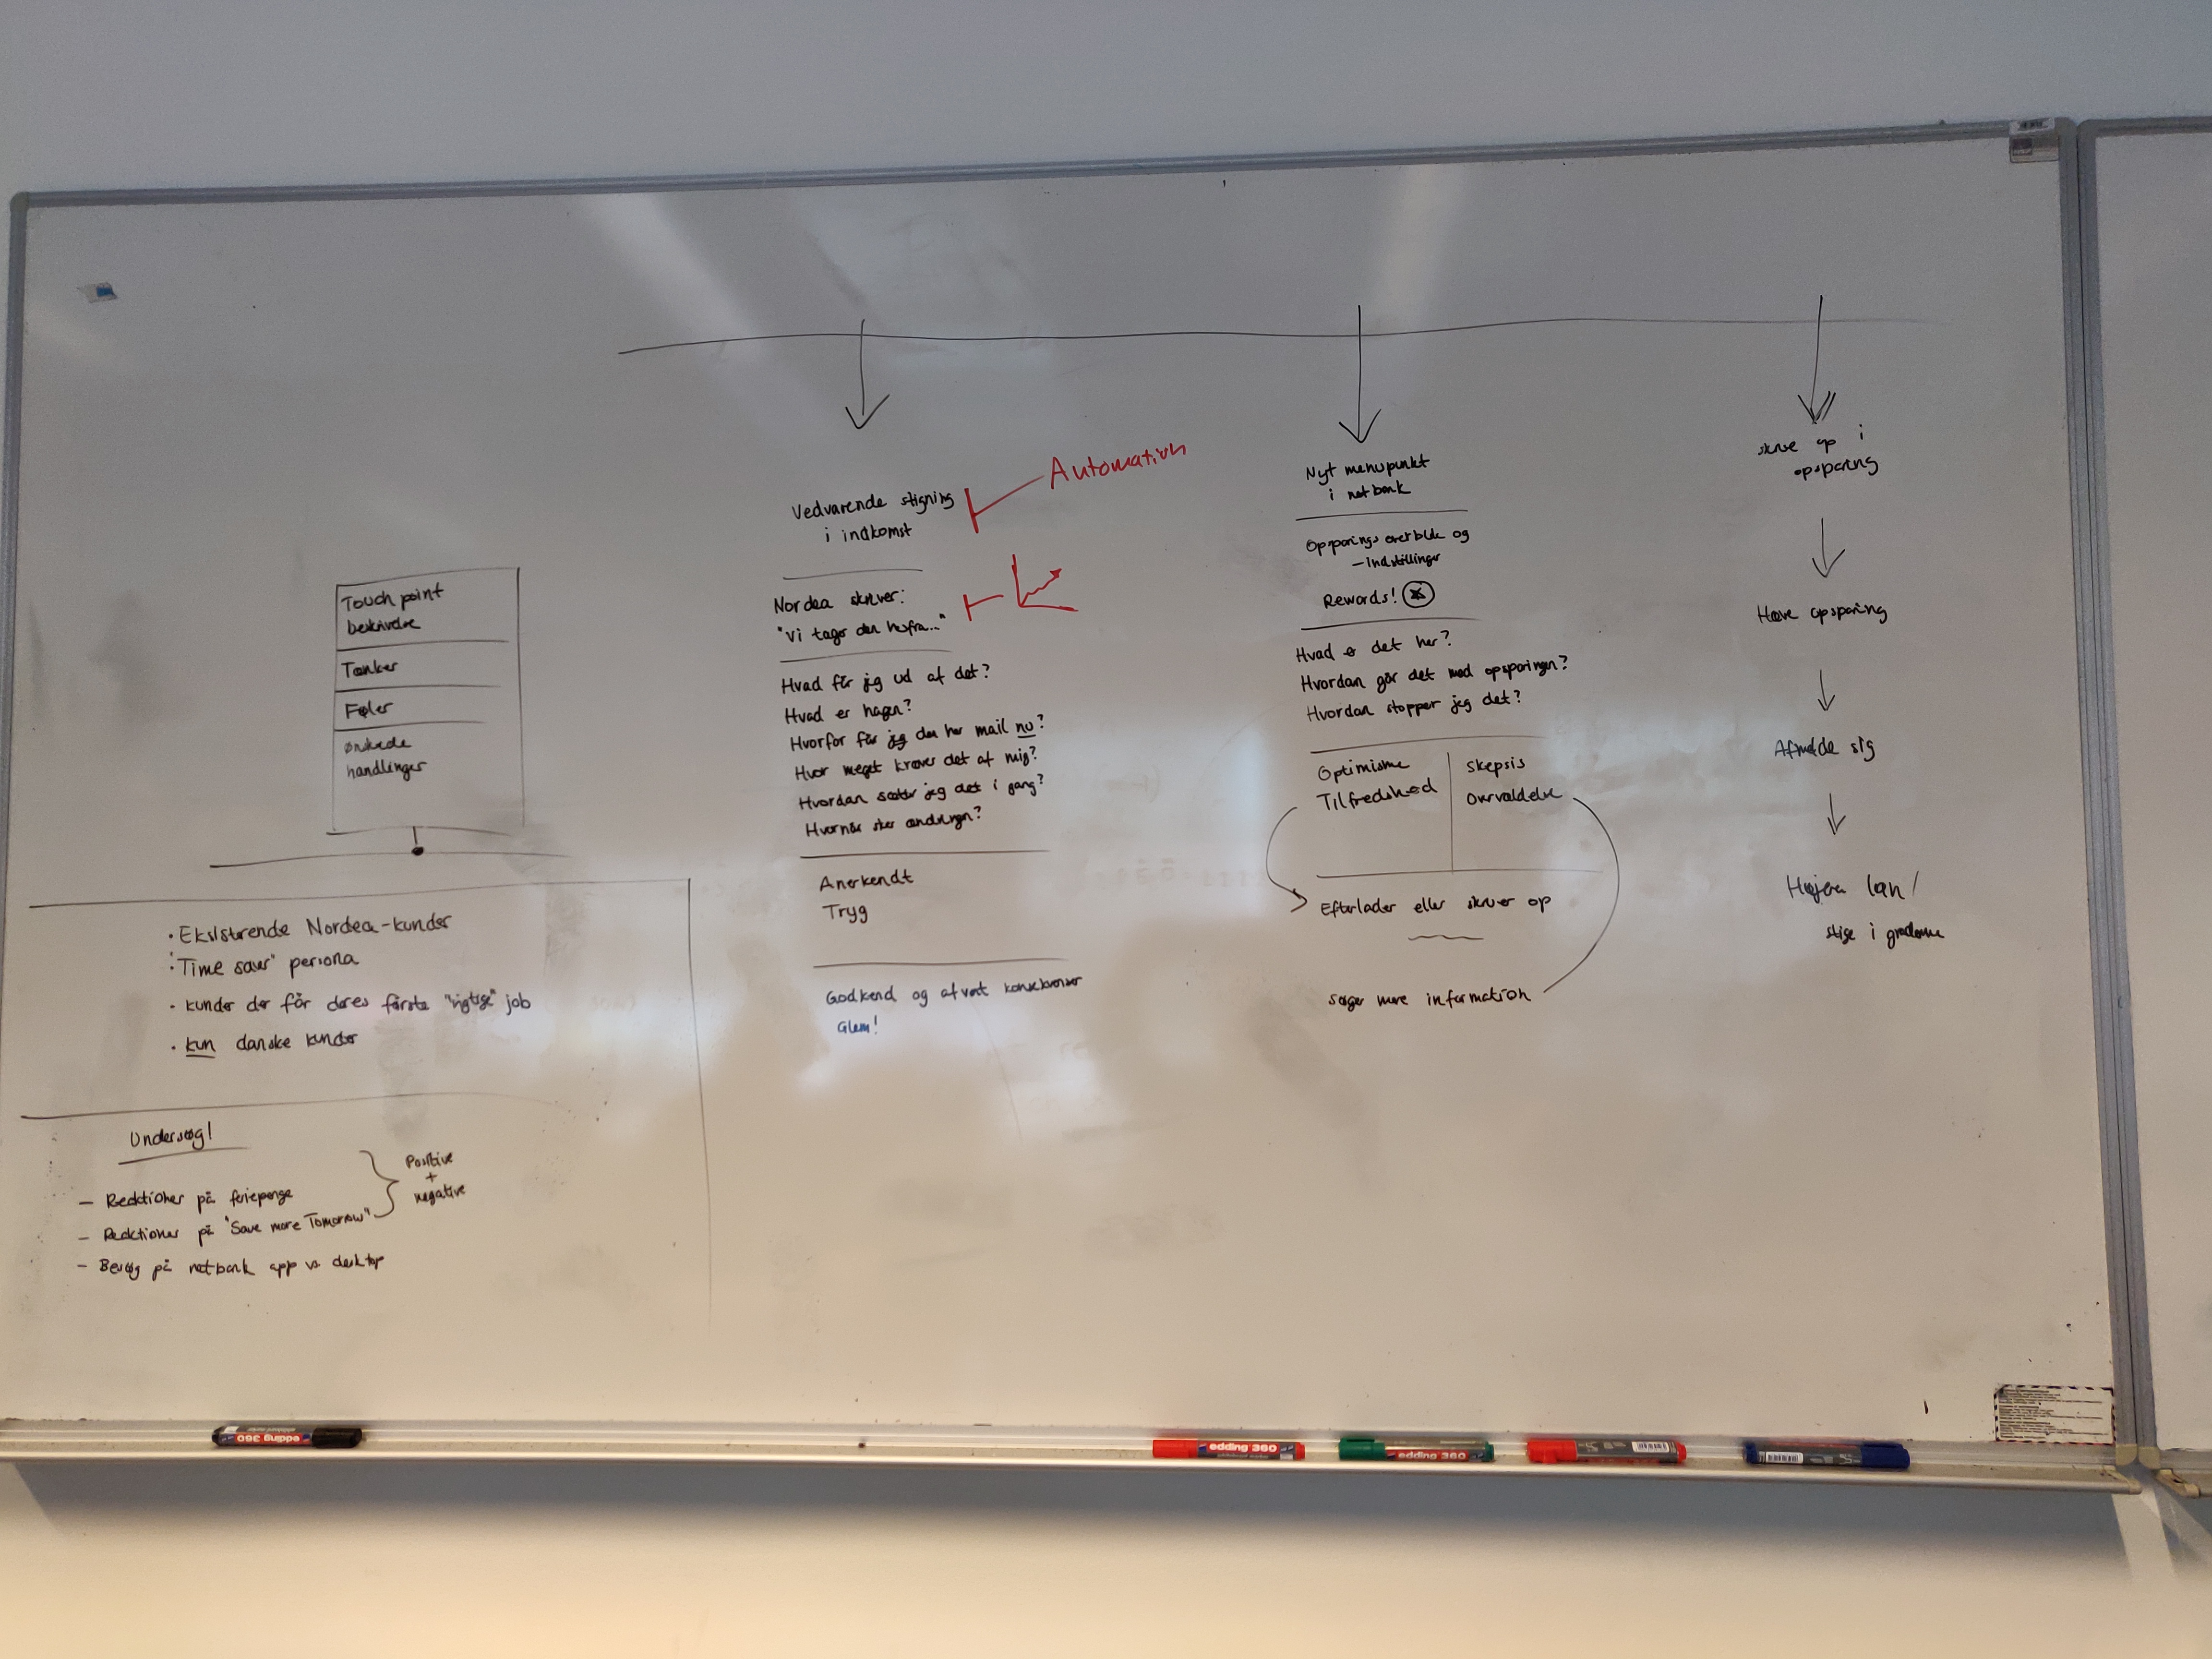 Touch point
beskrivelse
Tanker
Føler
ønskede
handlinger
· Eksisterende Nordea-kunder
· "Time saver" persona
· kunder der får deres første "rigtige" job
· kun danske kunder
Undersøg!
- Reaktioner på feriepenge
- Reaktioner på "Save more Tomorrow"
- Besøg på netbank app vs desktop
Positive
+
negative
Vedvarende stigning
i indkomst
Automation
Nordea skriver:
"Vi tager den herfra..."
Hvad får jeg ud af det?
Hvad er hagen?
Hvorfor får jeg den her mail nu?
Hvor meget kræver det af mig?
Hvordan sætter jeg det i gang?
Hvornår sker ændringen?
Anerkendt
Tryg
Godkend og afvent konsekvenser
Glem!
Nyt menupunkt
i netbank
Opsparings overblik og
-indstillinger
Rewards!
Hvad er det her?
Hvordan går det med opsparingen?
Hvordan stopper jeg det?
Optimisme
Tilfredshed
Skepsis
Overvældelse
Efterlader eller skruer op
Søger mere information
skrue op i
opsparing
Hæve opsparing
Afmelde sig
Højere løn/
stige i graderne
edding 360
edding 360
edding 360